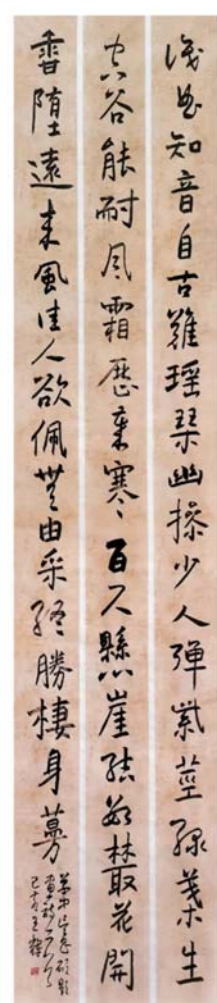 識曲知音自古難瑶琴幽操少人彈紫莖綠葉生
空谷能耐風霜歷歲寒百尺懸崖結數叢花開
香隨遠來風佳人欲佩無由采終勝棲身蔓
草中